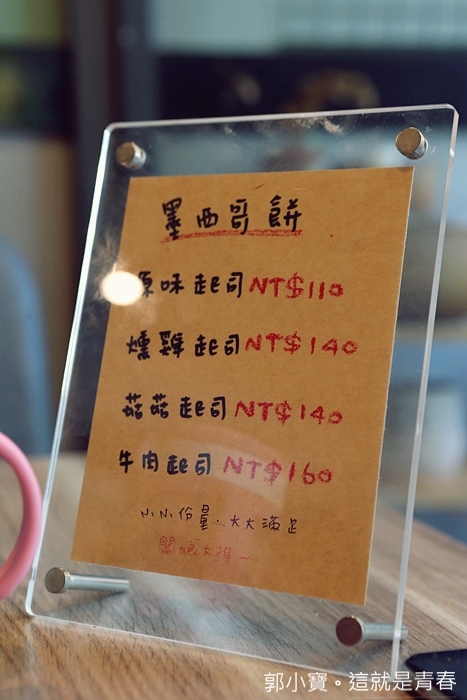 墨西哥餅
原味起司NT$110
燻雞起司NT$140
菇菇起司NT$140
牛肉起司NT$160
小小份量、大大滿足
郭小寶。這就是青春